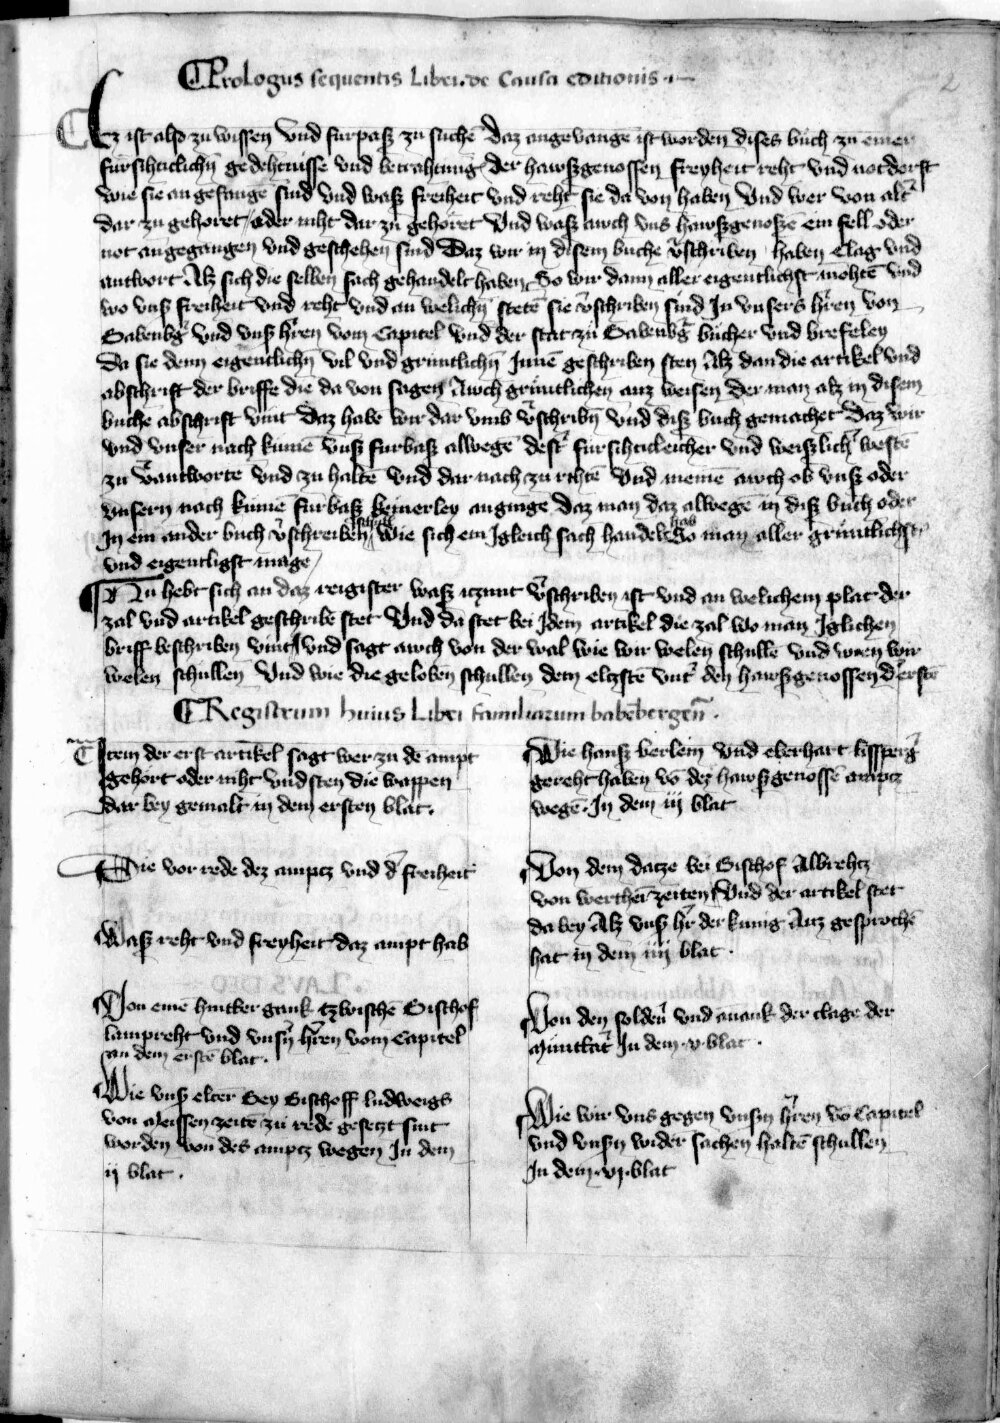 Prologus sequentis Libri de Causa editionis
Ez ist also zu wissen Vnd furpaß zu suchē Daz angevangē ist worden dises buch zu einer
fursihticlichn̄ gedehtnisse Vnd betrahtung Der hawßgenossen freyheit reht Vnd notderft
wie sie angefangē sind Vnd waß freiheit vnd reht sie da von haben Vnd wer von alt̄
dar zu gehoret / oder niht dar zu gehoret Vnd waß awch vns hawßgenoßē ein fell oder
not angegangen vnd geschehen sind Daz wir in disem buche v̄schriben haben Clag vnd
antwort Alz sich die selben sach gehandelt haben So wir dann aller eigentlichst mohtē Vnd
wo vnß freiheit vnd reht vnd an welichn̄ stetē sie v̄schriben sind In vnsers h̄ren von
Babenbḡ vnd vnß h̄ren vom Capitel Vnd der stat zu Babenbḡ bucher vnd brefeley
Da sie denn eigentlichn̄ vil vnd gruntlichn̄ Innē geschriben sten Alz dan die artikel vnd
abschrift der briffe die da von sagen Awch gruntlichen auz weisen Der man alz in disem
buche abschrift vint Daz habe wir dar vmb v̄schribn̄ vnd diß buch gemachet Daz wir
vnd vnser nach kumē vnß furbaß alwegē dest̄ fursihticleicher vnd weißlich̄ westē
zu v̄antworte vnd zu haltē vnd dar nach zu rihtē Vnd meinē awch ob vnß oder
vnsern nach kumē furbaß keinerley anginge Daz man daz alwegē in diß buch oder
In ein ander buch v̄schreiben schull Wie sich ein Igleich sach handelt hab So man aller gruntlichst
vnd eigentligst mage
Nu hebt sich an daz reigister waß iczunt v̄schriben ist vnd an welichem plat der
zal vnd artikel geschribē stet Vnd da stet bei Idem artikel die zal wo man Iglichen
briff beschriben vint vnd sagt awch von der wal wie wir welen schullē vnd wen wir
welen schullen Vnd wie die geloben schullen dem elczstē vnt̄ den hawßgenossen d̄ erstē
Registrum huius Libri familiarum babēbergen̄
Item der erst artikel sagt wer zu dē ampt
gehort oder niht vnd sten die wappen
dar bey gemalt in dem ersten blat.
Die vor rede dez amptz vnd d̄ freiheit
Waß reht vnd freyheit daz ampt hab
Von einē hintergank tzwischē Bischof
lampreht vnd vnsn̄ h̄ren vom Capitel
an dem erstē blat.
Wie vnß elter Bey Bischoff ludweigs
von Meissen zeitē zu rede gesetzt sint
worden von des amptz wegen In dem
ij blat.
Wie hanß berlein vnd eberhart lissperḡ
gereht haben vō dez hawßgenossē amptz
wegē. In dem iij blat
Von dem datze bei Bischof Albrehtz
von wertheī zeiten Vnd der artikel stet
da bey Alz vnß h̄r der kunig Auz gesprochē
hat in dem iiij blat.
Von den solden̄ vnd avank der clage der
Muntat̄ In dem .v. blat.
Wie wir vns gegen vnsn̄ h̄ren vō Capitel
vnd vnsn̄ wider sachen haltē schullen
In dem .vj. blat